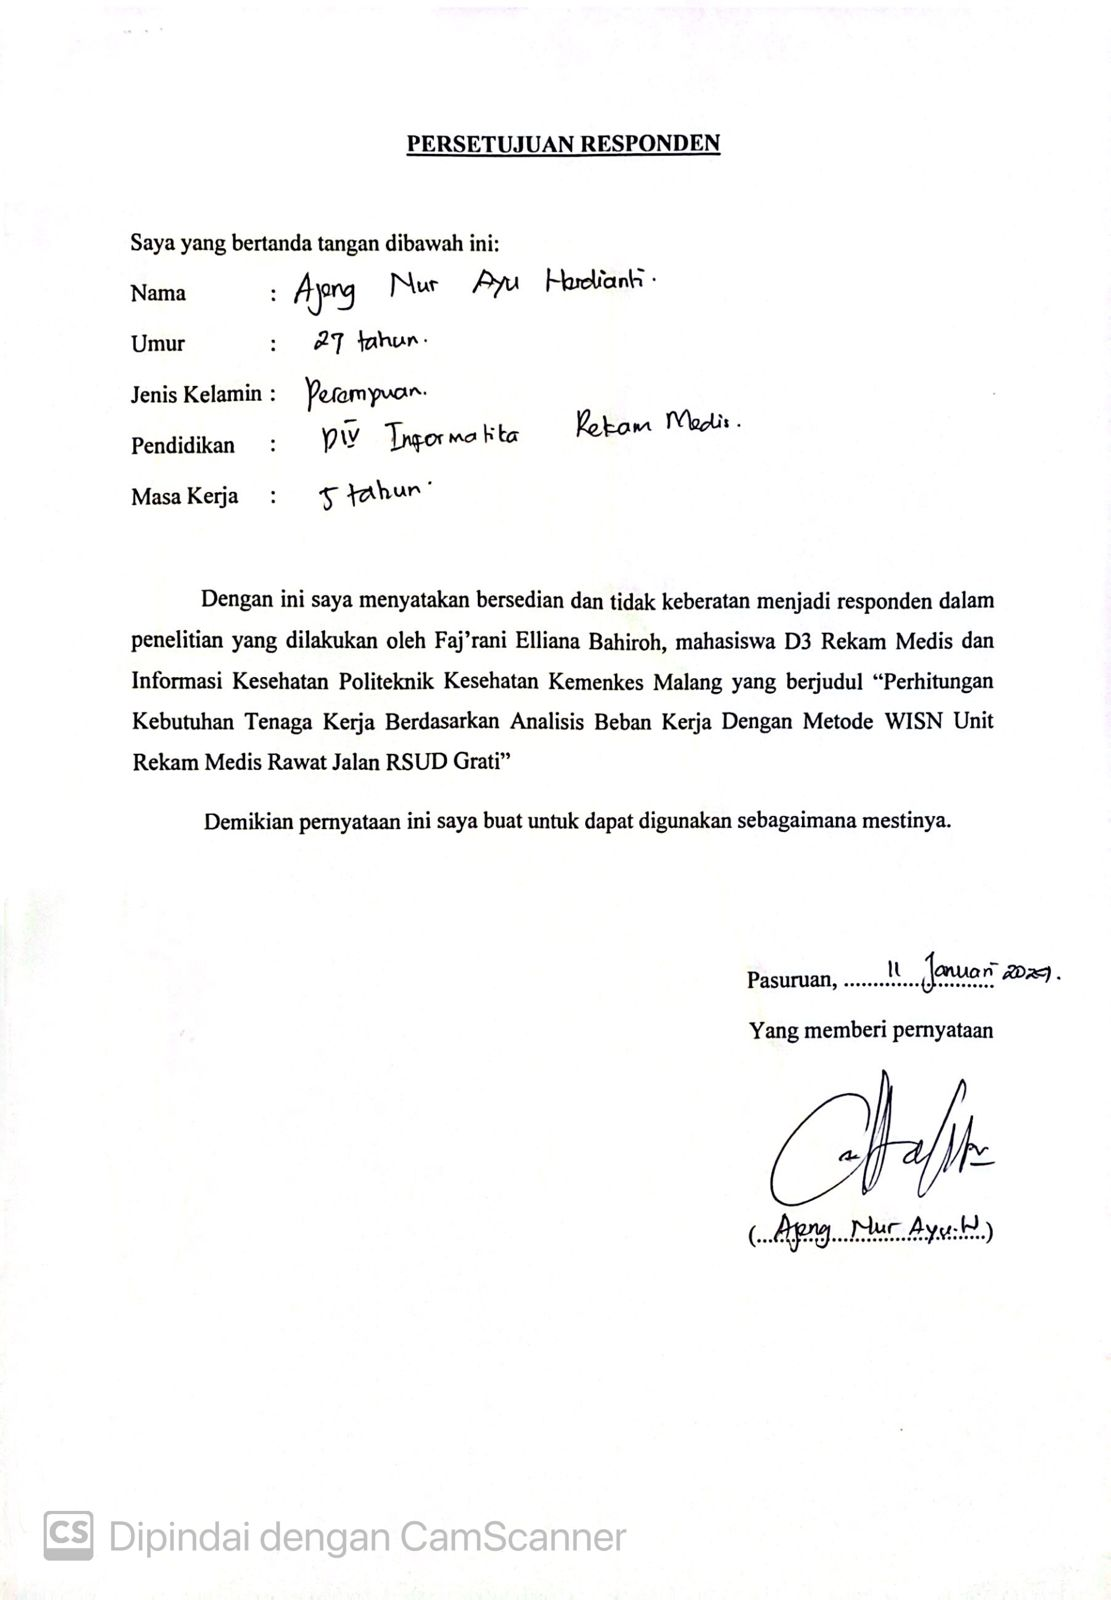 PERSETUJUAN RESPONDEN
Saya yang bertanda tangan dibawah ini:
Nama : Ajeng Nur Ayu Hardianti.
Umur : 27 tahun.
Jenis Kelamin : Perempuan.
Pendidikan : DIV Informatika Rekam Medis.
Masa Kerja : 5 tahun.
Dengan ini saya menyatakan bersedian dan tidak keberatan menjadi responden dalam
penelitian yang dilakukan oleh Faj’rani Elliana Bahiroh, mahasiswa D3 Rekam Medis dan
Informasi Kesehatan Politeknik Kesehatan Kemenkes Malang yang berjudul “Perhitungan
Kebutuhan Tenaga Kerja Berdasarkan Analisis Beban Kerja Dengan Metode WISN Unit
Rekam Medis Rawat Jalan RSUD Grati”
Demikian pernyataan ini saya buat untuk dapat digunakan sebagaimana mestinya.
Pasuruan, 11 Januari
Yang memberi pernyataan
(Ajeng Nur Ayu.H)
CS Dipindai dengan CamScanner